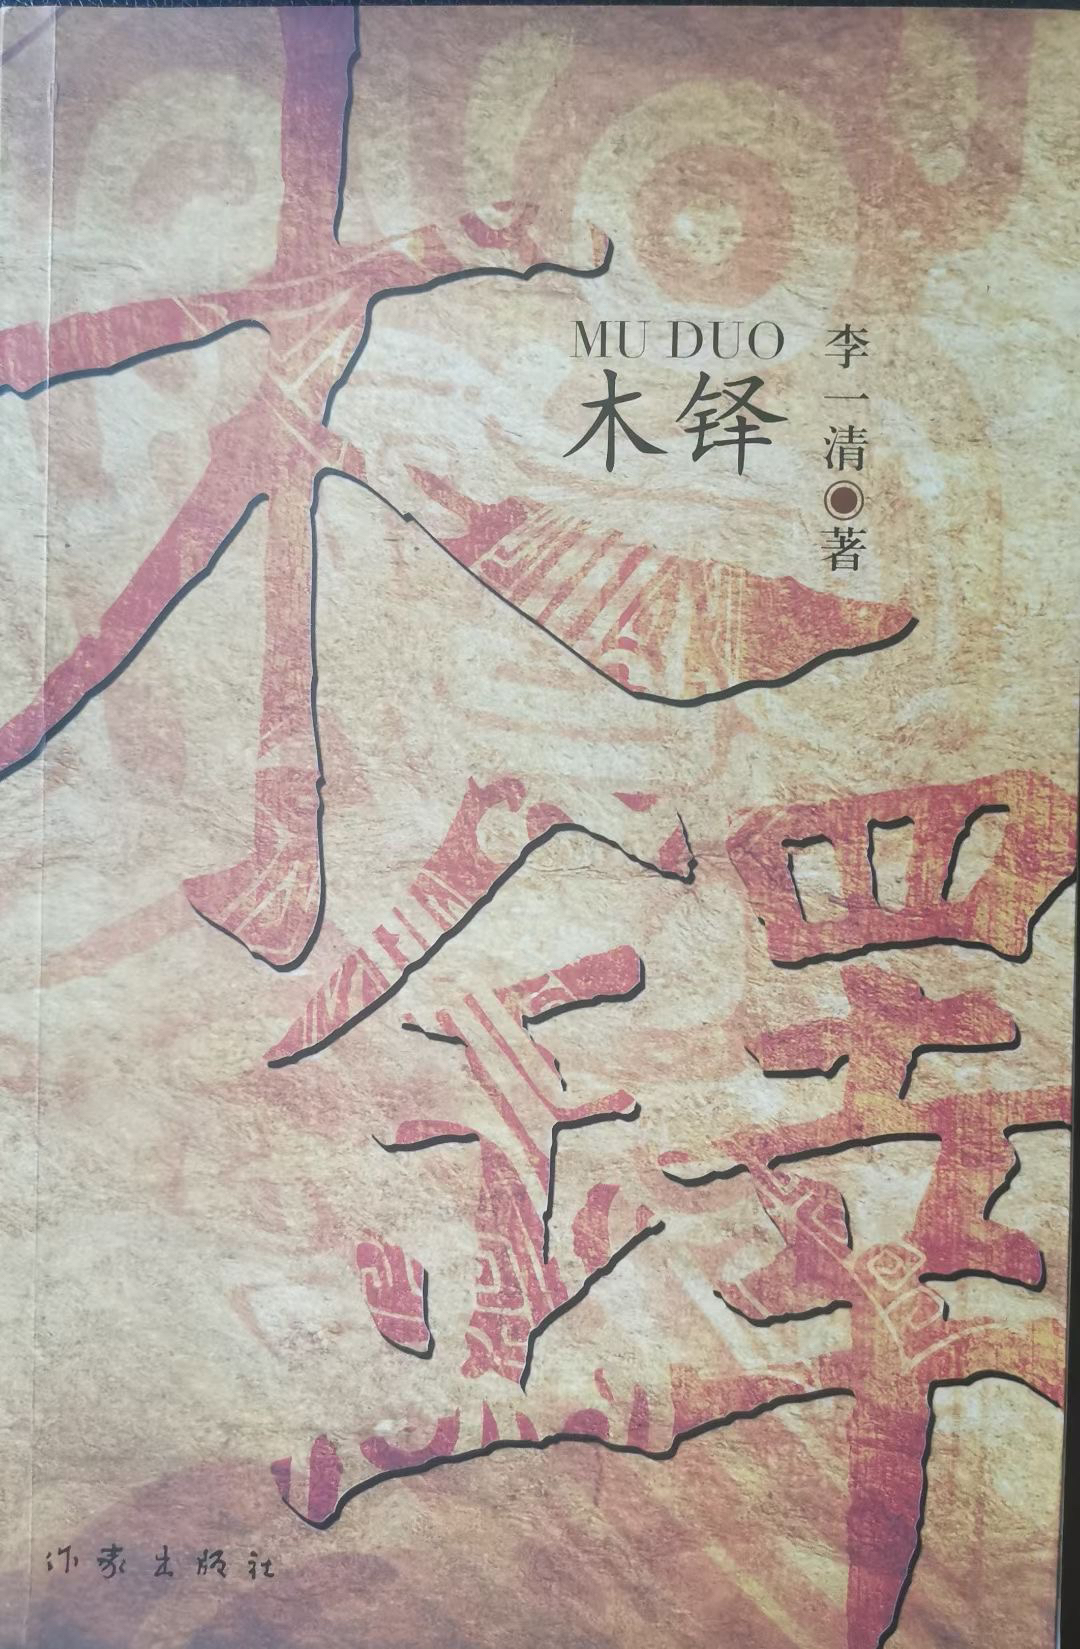 木鐸
MU DUO
木铎
李一清◉著
作家出版社